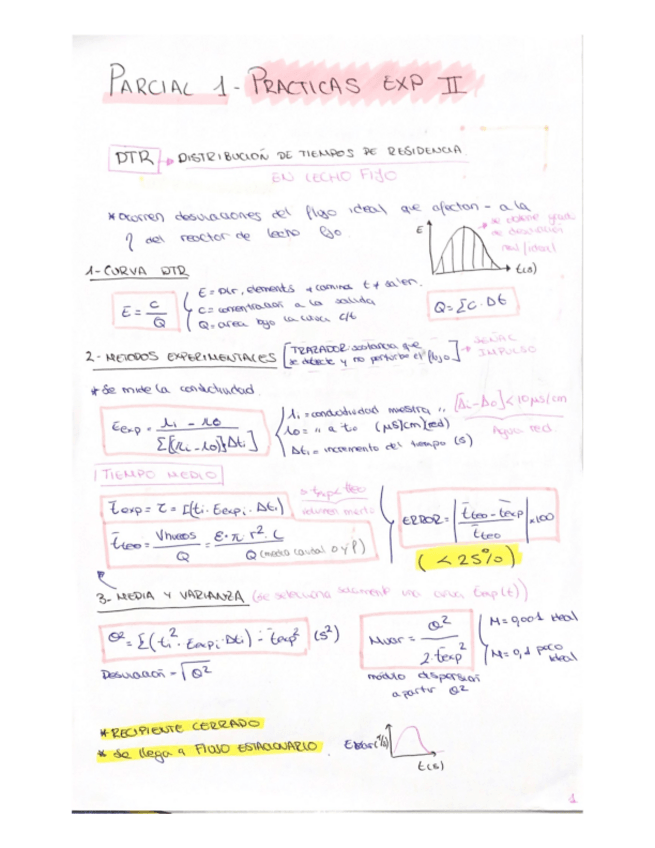 PARCIAL 1 - PRACTICAS EXP II
DTR → DISTRIBUCIÓN DE TIEMPOS DE RESIDENCIA
EN LECHO FIJO
* Ocurren desviaciones del flujo ideal que afectan - a la
η del reactor de lecho fijo.
E
t(s)
1- CURVA DTR
E = C / Q
E = Distr, elements
C = concentración a la salida
Q = area bajo la curva c/t
Q = Σ C · Δt
2- METODOS EXPERIMENTALES [TRAZADOR sustancia que
se detecte y no perturbe el flujo] → SEÑAL
IMPULSO
* Se mide la conductividad.
Eexp = (λi - λ0) / Σ[(λi - λ0)·Δti]
λi = conductividad muestra
λ0 = " a t0 (μS/cm)(red)
Δti = incremento del tiempo (s)
[Δi - Δ0] < 10 μS/cm
Agua red.
TIEMPO MEDIO
t̄exp = τ = Σ(ti · Eexpi · Δti)
t̄teo = Vhuecos / Q = ε · π · r² · L / Q
texp < tteo
volumen muerto
ERROR = |(t̄teo - t̄exp) / t̄teo| × 100
(< 25%)
3- MEDIA Y VARIANZA
σ² = Σ(ti² · Eexpi · Δti) - t̄exp² (s²)
Desviación = √σ²
Mvar = σ² / 2 · t̄exp²
M = 0,001 ideal
M = 0,1 poco
ideal
modulo dispersion
a partir σ²
* RECIPIENTE CERRADO
* Se llega a FLUJO ESTACIONARIO.
t(s)
1